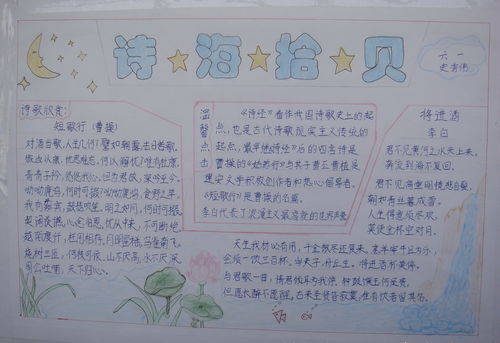 诗海拾贝
六一
诗歌欣赏:
短歌行(曹操)
对酒当歌,人生几何?譬如朝露,去日苦多。
慨当以慷,忧思难忘。何以解忧?唯有杜康。
青青子衿,悠悠我心。但为君故,沉吟至今。
呦呦鹿鸣,
我有嘉宾,鼓瑟吹笙。明之如月,何时可掇。
忧从中来,不可断绝。
越陌度阡,枉用相存。月明星稀,乌鹊南飞。
绕树三匝,何枝可依。山不厌高,水不厌深。
周公吐哺,天下归心。
温馨点击
《诗经》看作我国诗歌史上的起
点,也是古代诗歌现实主义传统的
起点,最早他《诗经》的四言诗是
曹操的
建安文学积极创作者和热心倡导者。
《短歌行》是曹操的名篇。
李白代表了浪漫主义最高
将进酒
李白
君不见黄河之水天上来,
奔流到海不复回。
君不见高堂明镜悲白发,
朝如青丝暮成雪。
人生得意须尽欢,
莫使金杯空对月。
天生我材必有用,千金散尽还复来。烹羊宰牛且为乐,
会须一饮三百杯。岑夫子,丹丘生。将进酒杯莫停。
与君歌一曲,请君侧耳为我听。钟鼓馔玉何足贵,
但愿长醉不愿醒。古来圣贤皆寂寞,惟有饮者留其名。